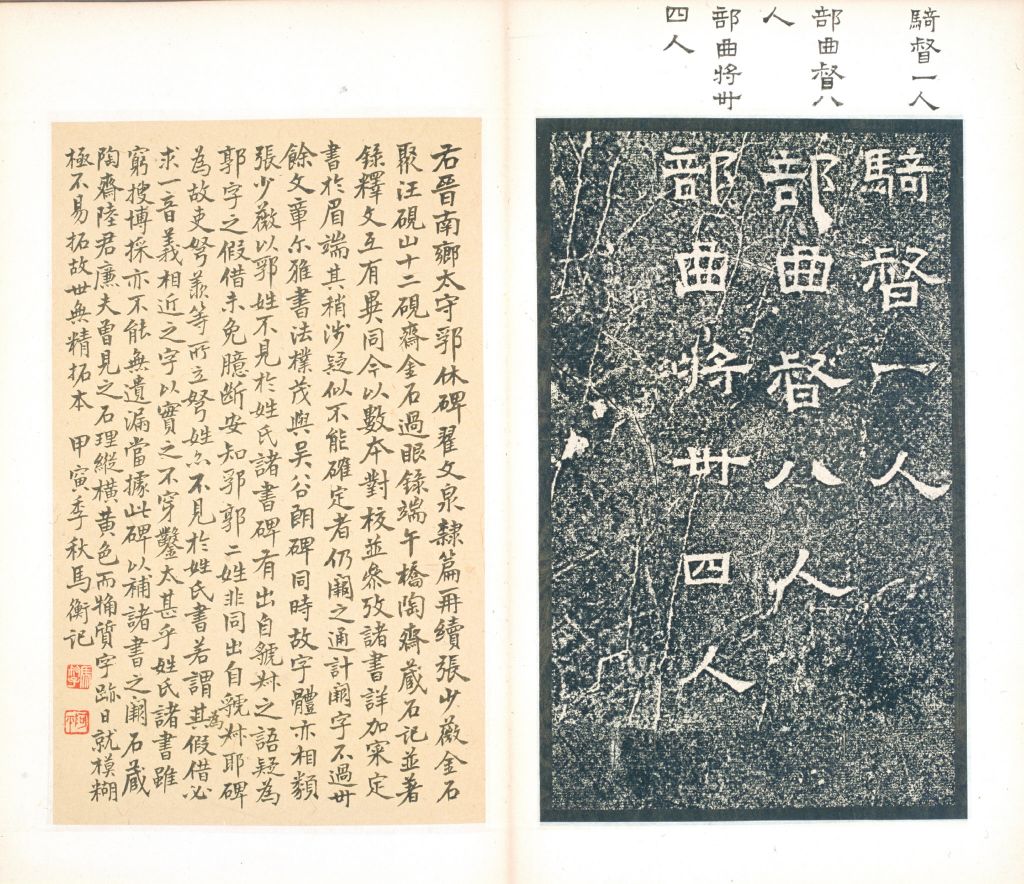 騎督一人
部曲督八
人
部曲將卌
四人
騎督一人
部曲督八人
部曲將卌四人
右晉南鄉太守郛休碑翟文泉隸篇再續張少薇金石
聚汪硯山十二硯齋金石過眼錄端午橋陶齋藏石記並著
錄釋文互有異同今以數本對校並參攷諸書詳加寀定
書於眉端其稍涉疑似不能確定者仍闕之通計闕字不過卅
餘文章尒雅書法樸茂與吴谷朗碑同時故字體亦相類
張少薇以郛姓不見於姓氏諸書碑有出自虢叔之語疑為
郭字之假借未免臆斷安知郛郭二姓非同出自虢叔耶碑
為故吏弩羕等所立弩姓亦不見於姓氏書若謂其為假借必
求一音義相近之字以實之不穿鑿太甚乎姓氏諸書雖
窮搜博採亦不能無遺漏當據此碑以補諸書之闕石藏
陶齋陸君廉夫曾見之石理縱橫黃色而觕質字跡日就模糊
極不易拓故世無精拓本 甲寅季秋馬衡記